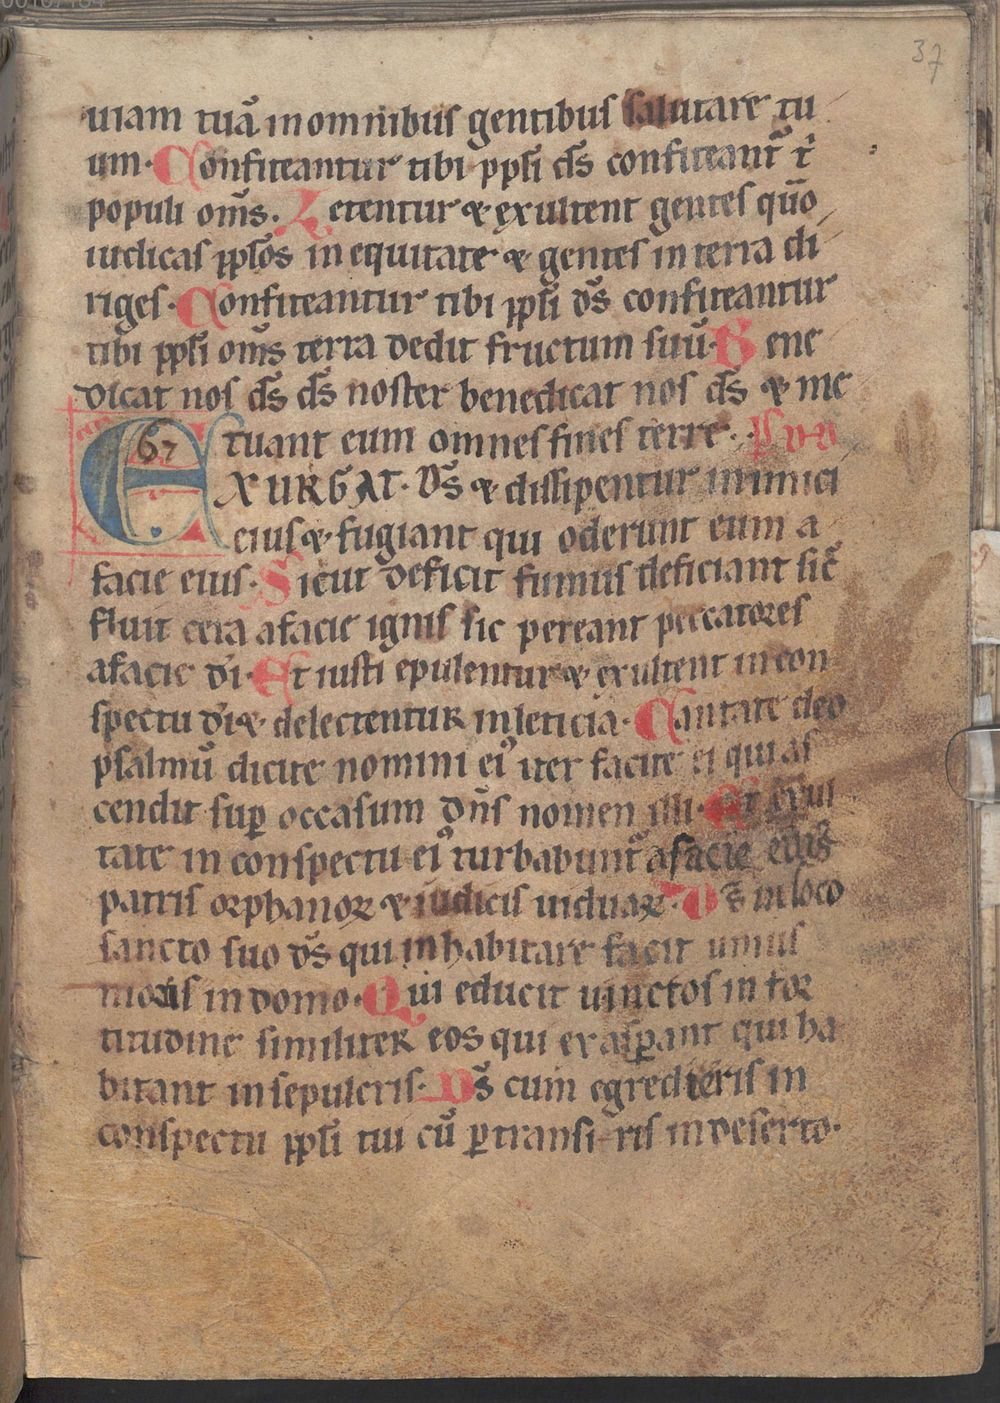 37
uiam tuā in omnibus gentibus salutare tu
um. Confiteantur tibi ppłi ds̄ confiteant᷑ t̄
populi om̄s. Letentur & exultent gentes qūo
iudicas ppłos in equitate & gentes in terra di
riges. Confiteantur tibi ppłi ds̄ confiteantur
tibi ppłi om̄s terra dedit fructum suū. Bene
dicat nos ds̄ ds̄ noster benedicat nos ds̄ & me
tuant eum omnes fines terre.
67
EXURGAT. Ds̄ & dissipentur inimici
eius & fugiant qui oderunt eum a
facie eius. Sicut deficit fumus deficiant sic̄
fluit cera a facie ignis sic pereant peccatores
a facie di̅. Et iusti epulentur & exultent in con
spectu di̅ & delectentur in leticia. Cantate deo
psalmū dicite nomini ei᷒ iter facite ei qui as
cendit suꝑ occasum dn̄s nomen illi. Et exul
tate in conspectu ei᷒ turbabunt᷑ a facie eius
patris orphanoꝝ & iudicis uiduaꝝ. Ds̄ in loco
sancto suo ds̄ qui inhabitare facit unius
moris in domo. Qui educit uinctos in for
titudine similiter eos qui exasꝑant qui ha
bitant in sepulcris. Ds̄ cum egredieris in
conspectu ppłi tui cū ꝑtransi ris in deserto.